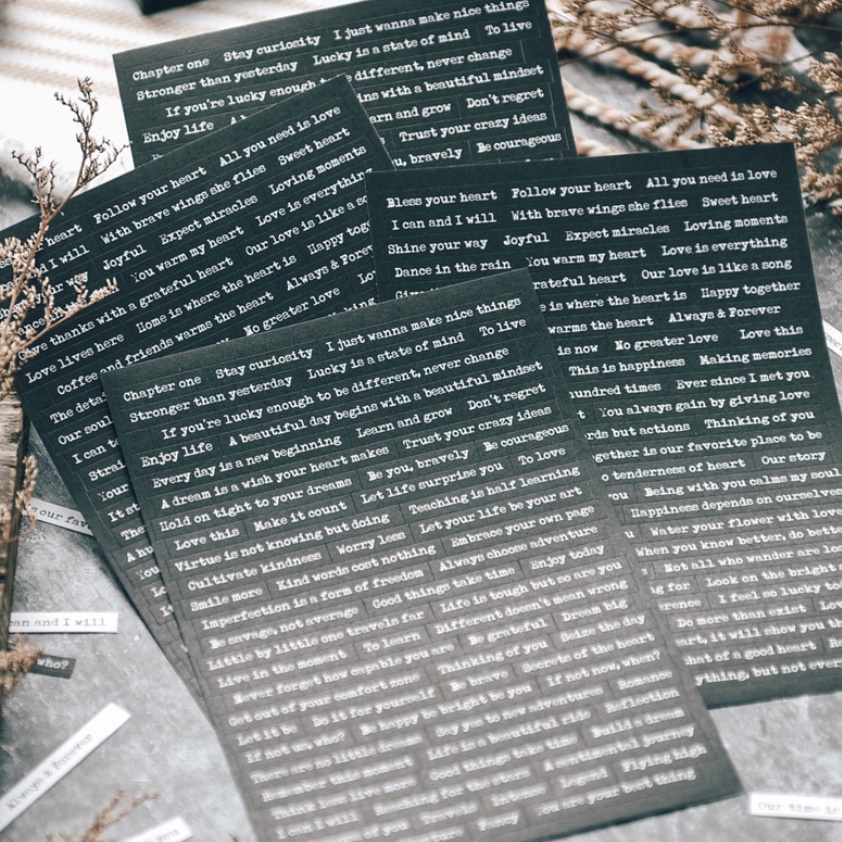 Chapter one Stay curiosity I just wanna make nice things
Stronger than yesterday Lucky is a state of mind To live
If you're lucky enough to be different, never change
Enjoy life
begins with a beautiful mindset
Learn and grow Don't regret
Trust your crazy ideas
bravely Be courageous
heart Follow your heart All you need is love
and I will With brave wings she flies Sweet heart
your way Joyful Expect miracles Loving moments
You warm my heart Love is everything
Give thanks with a grateful heart Our love is like a
Love lives here Home is where the heart is Happy
Coffee and friends warms the heart Always & Forever
The No greater love
Our soul
I can
Your
It
Bless your heart Follow your heart All you need is love
I can and I will With brave wings she flies Sweet heart
Shine your way Joyful Expect miracles Loving moments
Dance in the rain You warm my heart Love is everything
grateful heart Our love is like a song
is where the heart is Happy together
warms the heart Always & Forever
is now No greater love Love this
This is happiness Making memories
hundred times Ever since I met you
You always gain by giving love
but actions Thinking of you
together is our favorite place to be
tenderness of heart Our story
you Being with you calms my soul
Happiness depends on ourselves
Water your flower with love
When you know better, do better
Not all who wander are
for Look on the bright
I feel so lucky
Do more than exist
it will show you
of a good heart
but not
Chapter one Stay curiosity I just wanna make nice things
Stronger than yesterday Lucky is a state of mind To live
If you're lucky enough to be different, never change
Enjoy life A beautiful day begins with a beautiful mindset
Every day is a new beginning Learn and grow Don't regret
A dream is a wish your heart makes Trust your crazy ideas
Hold on tight to your dreams Be you, bravely Be courageous
Love this Make it count Let life surprise you To love
Virtue is not knowing but doing Teaching is half learning
Cultivate kindness Worry less Let your life be your art
Smile more Kind words cost nothing Embrace your own page
Imperfection is a form of freedom Always choose adventure
Be savage, not average Good things take time Enjoy today
Little by little one travels far Life is tough but so are you
Live in the moment To learn Different doesn't mean wrong
Never forget how capable you are Be grateful Dream big
Get out of your comfort zone Thinking of you Seize the day
Let it be Do it for yourself Be brave Secrets of the heart
If not us, who? Be happy be bright be you If not now, when?
There are no little dreams Say yes to new adventures Romance
Remember this moment Life is a beautiful ride Reflection
Think less live more Good things take time Build a dream
I can I will Reaching for the stars A sentimental journey
of you Travels Intense Legend Flying high
You are your best thing
can and I will
who?
Always & Forever
you
Our time is